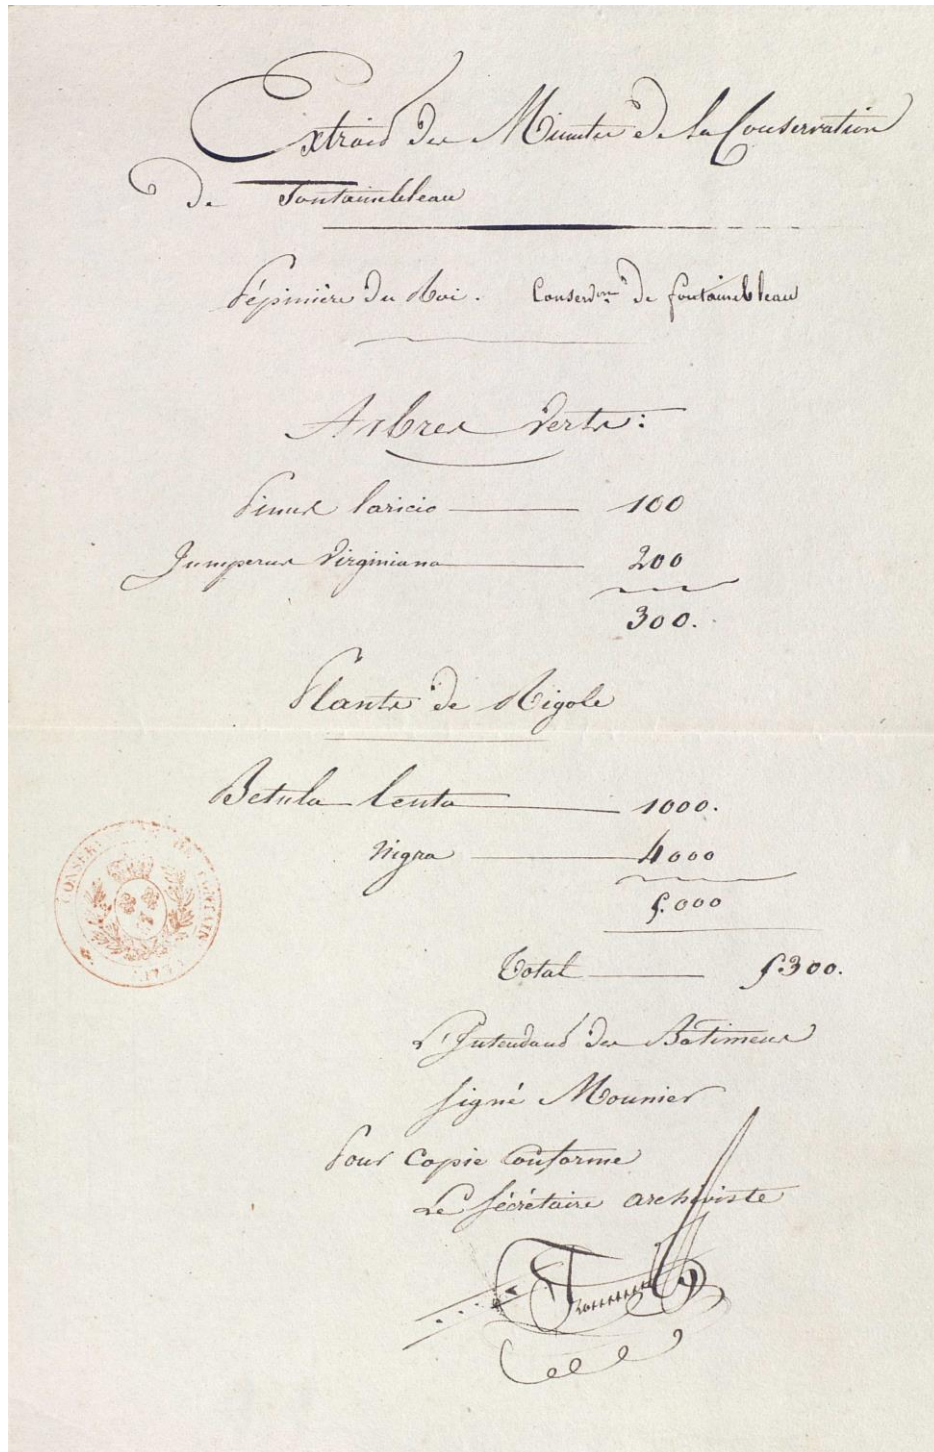 Extrait des Minutes de la Conservation
de Fontainebleau
Pépinière du Roi. Conserv.on de fontainebleau
Arbres Verts:
Pinus laricio 100
Juniperus Virginiana 200
300.
Plants de Rigole
Betula lenta 1000.
nigra 4000
5.000
Total 5300.
L'Intendant des Bâtimens
signé Mounier
Pour Copie Conforme
Le sécrétaire archiviste